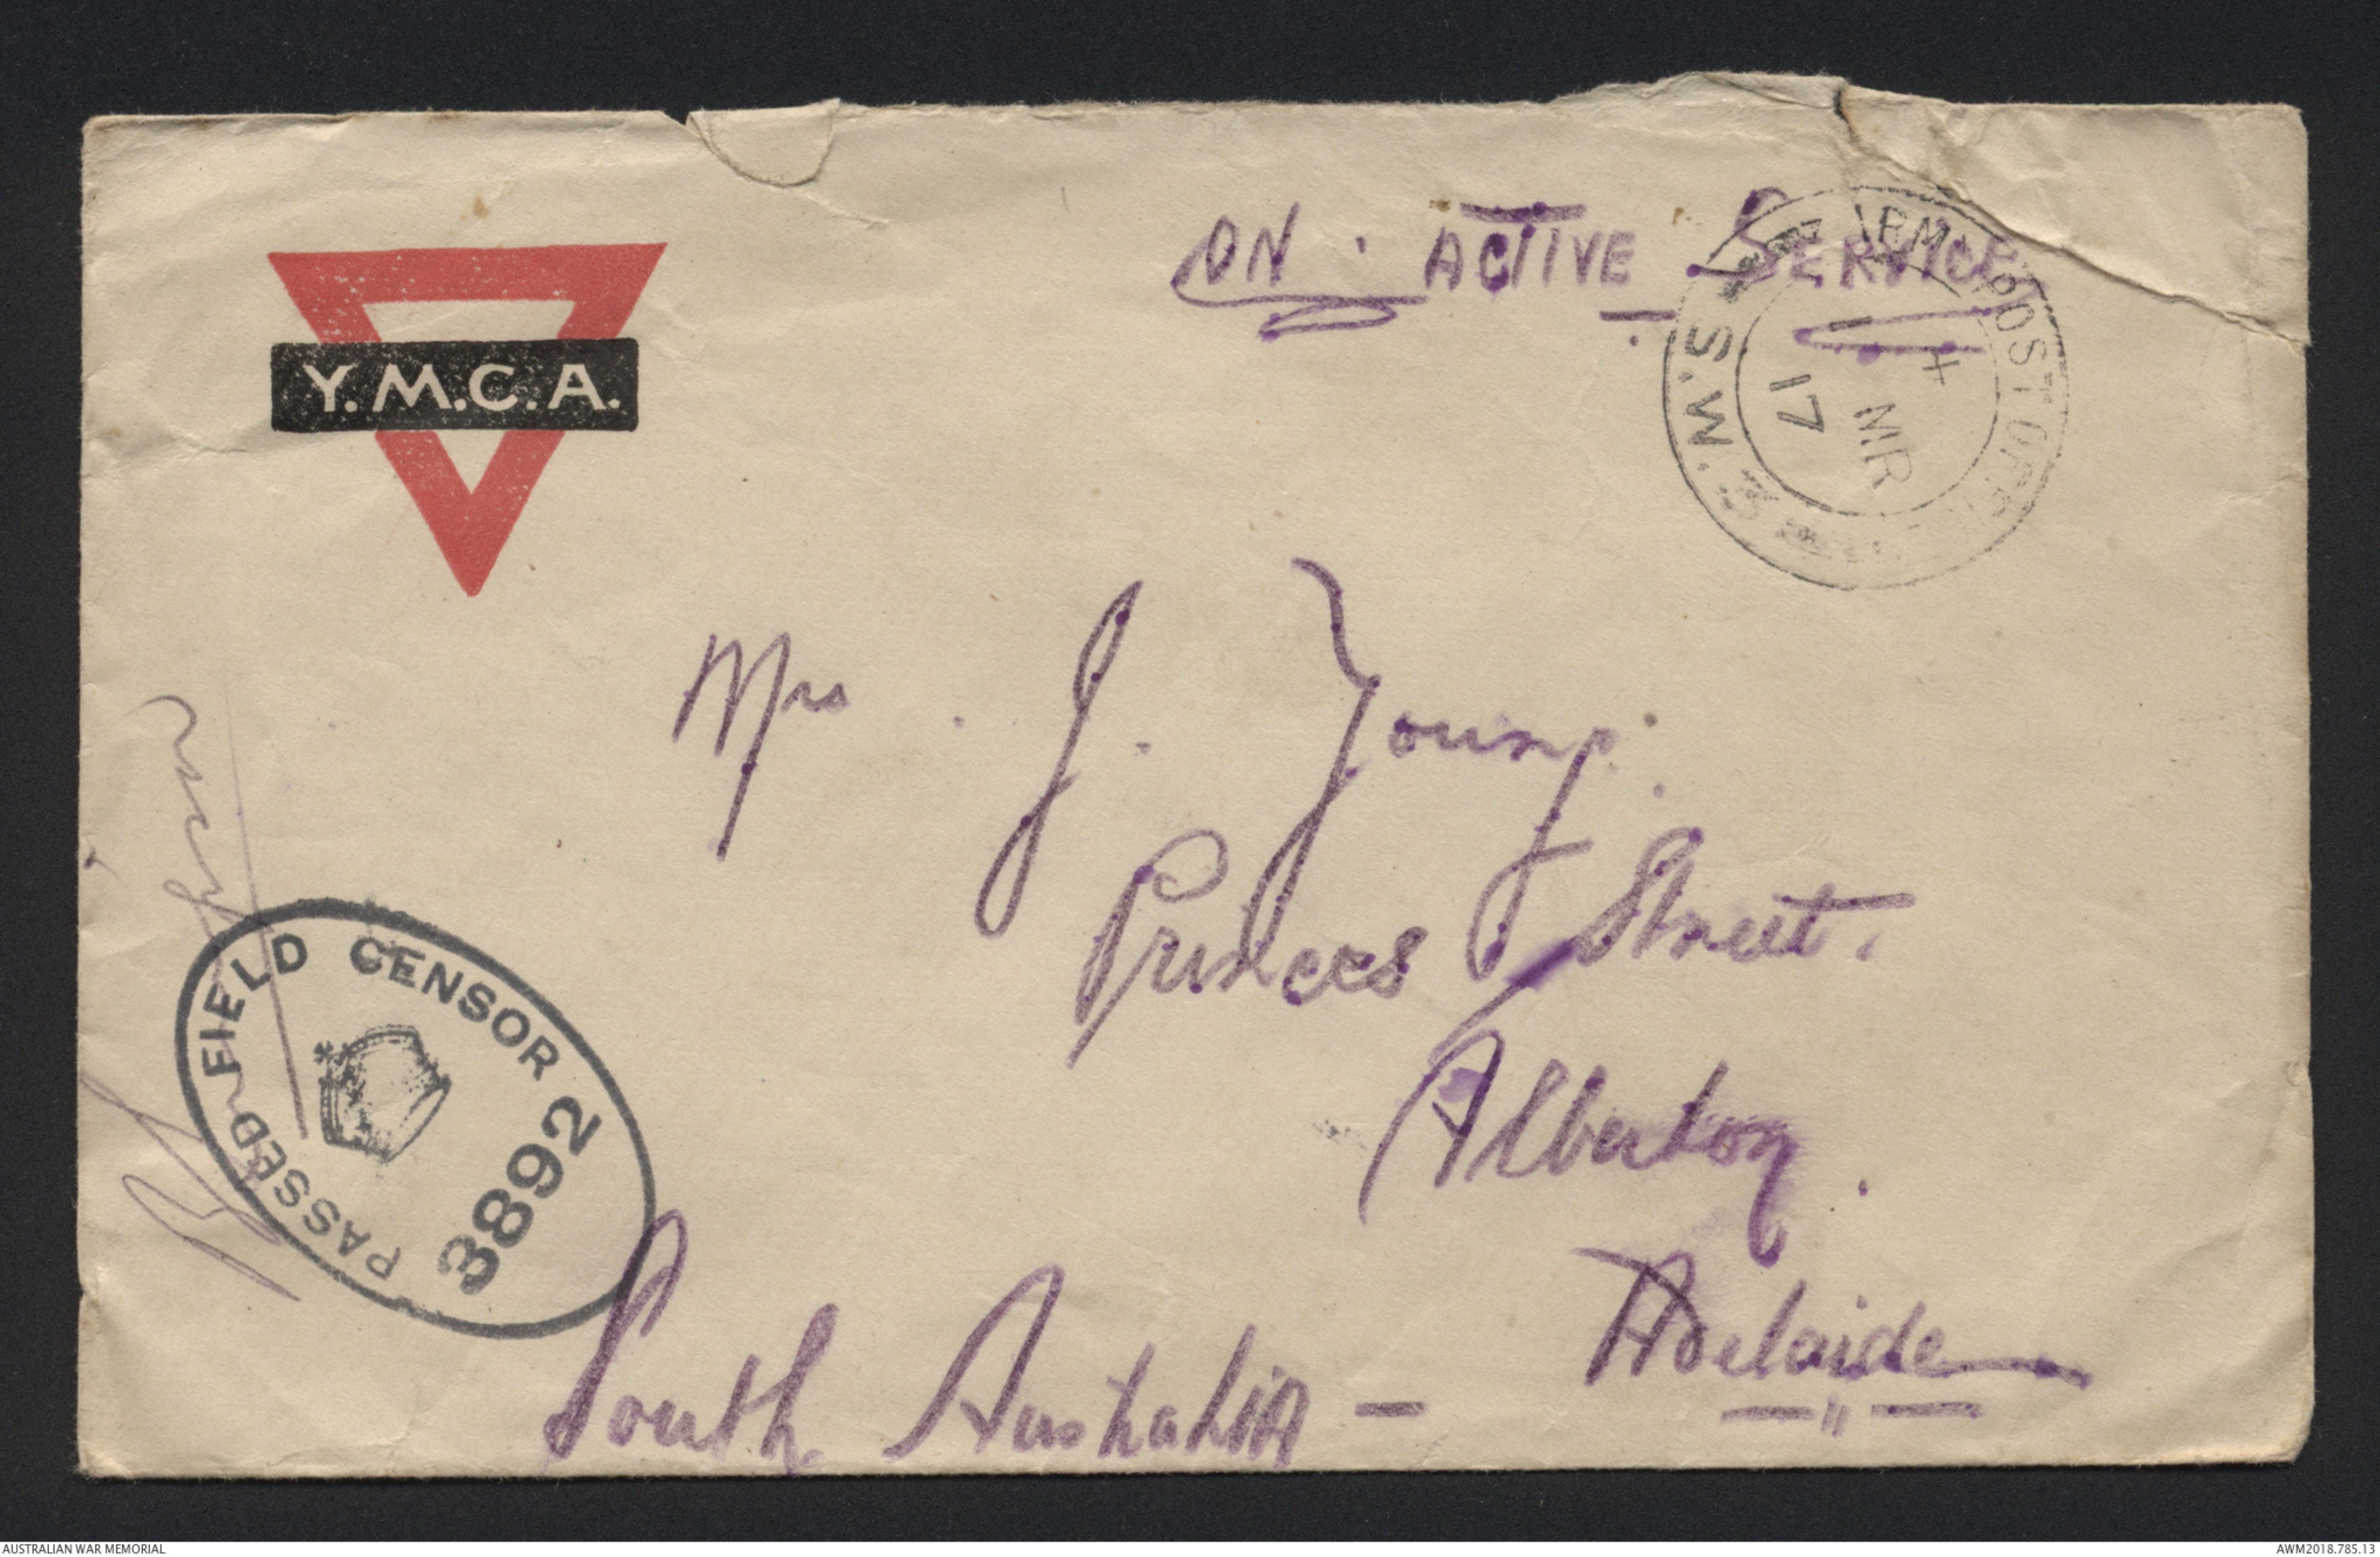 ON · ACTIVE SERVICE
Y.M.C.A.
ARMY POST OFFICE
S.W.
MR
17
Mrs. J. Young.
Princes Street.
Alberton.
Adelaide
South Australia —
PASSED FIELD CENSOR
3892
AUSTRALIAN WAR MEMORIAL
AWM2018.785.13